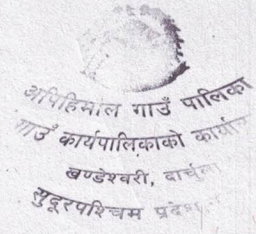 अपिहिमाल गाउँ पालिका
गाउँ कार्यपालिकाको
खण्डेश्वरी, दार्चुला
सुदूरपश्चिम प्रदेश